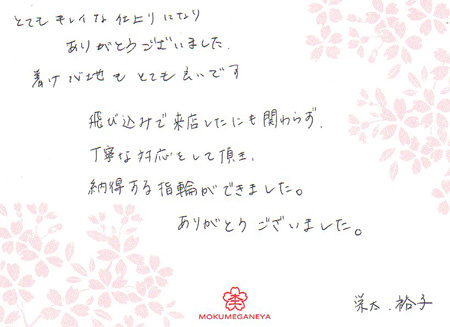 とてもキレイな仕上りになり
ありがとうございました.
着け心地もとても良いです
飛び込みで来店したにも関わらず、
丁寧な対応をして頂き、
納得する指輪ができました。
ありがとうございました。
MOKUMEGANEYA
栄太.裕子